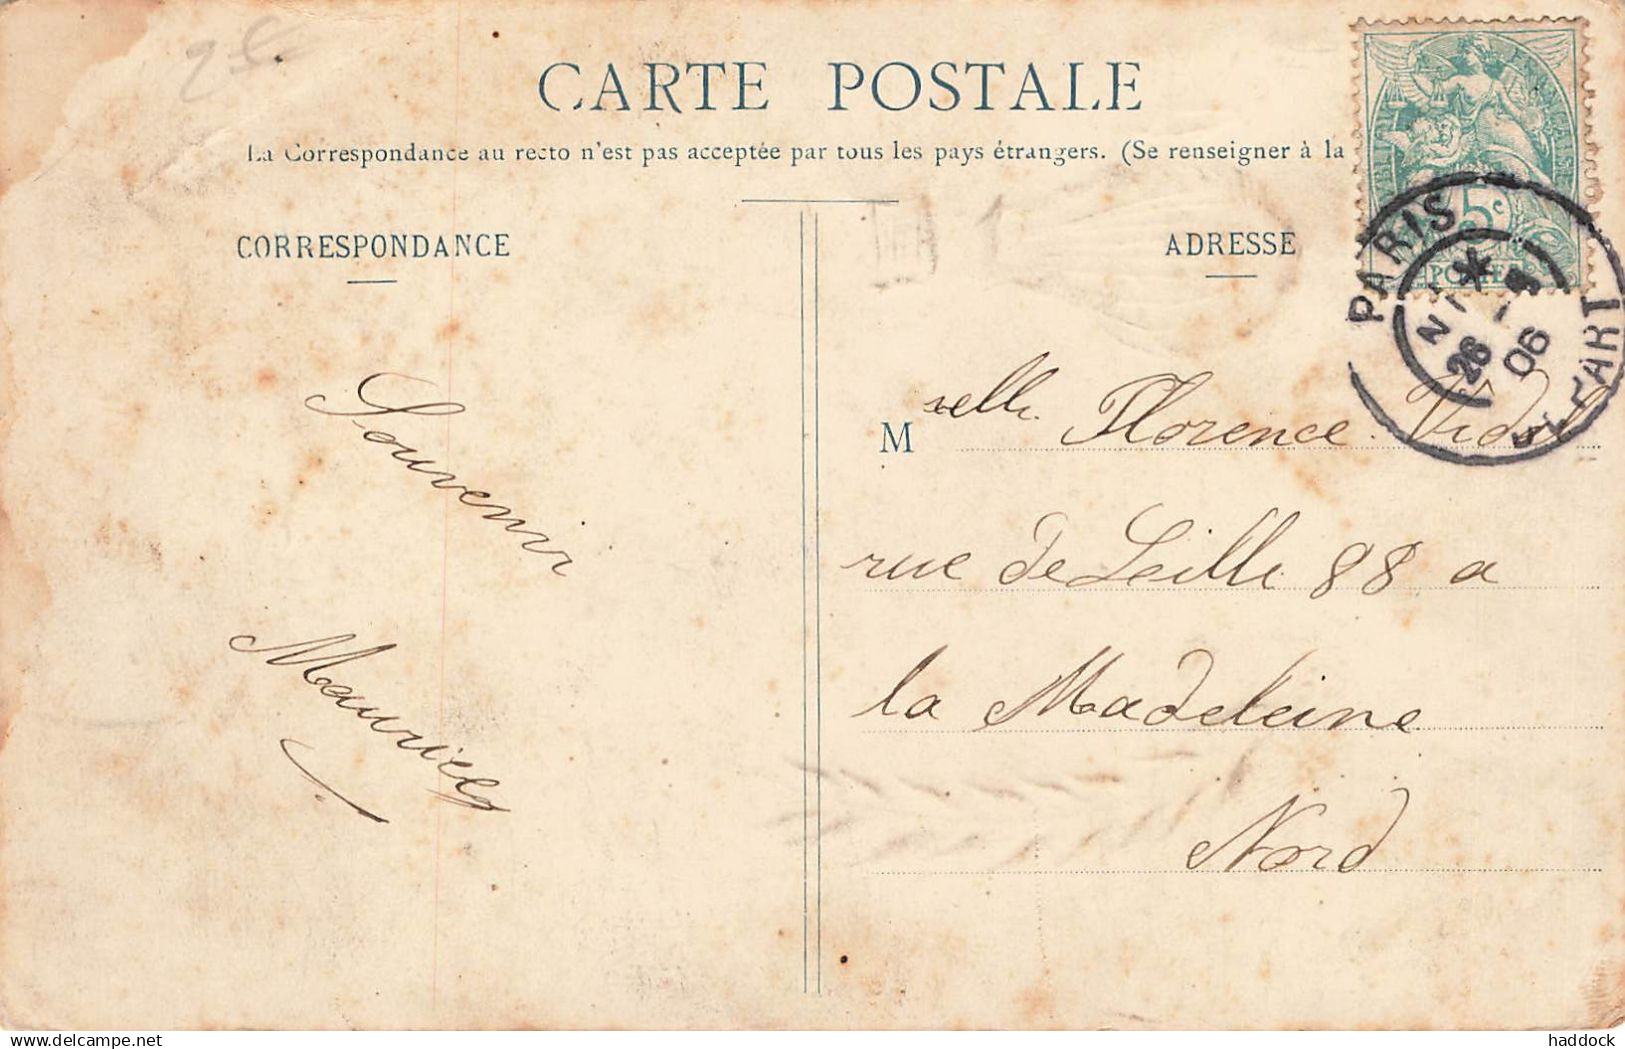 CARTE POSTALE
La Correspondance au recto n'est pas acceptée par tous les pays étrangers. (Se renseigner à la
CORRESPONDANCE
ADRESSE
5c
POSTES
PARIS
DÉPART
26 - 5
06
Souvenir
Maurice
Mselle Florence Vidal
rue de Leille 88 a
la Madeleine
Nord
Delcampe.net
haddock